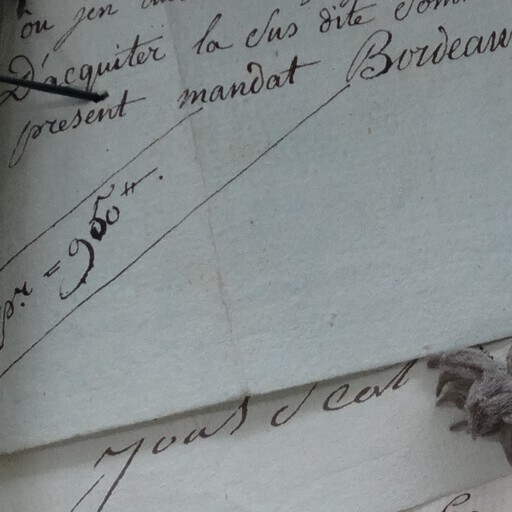 où j'en
D'acquiter la sus dite Som
present mandat Bordeau
pr = 950 ₶.